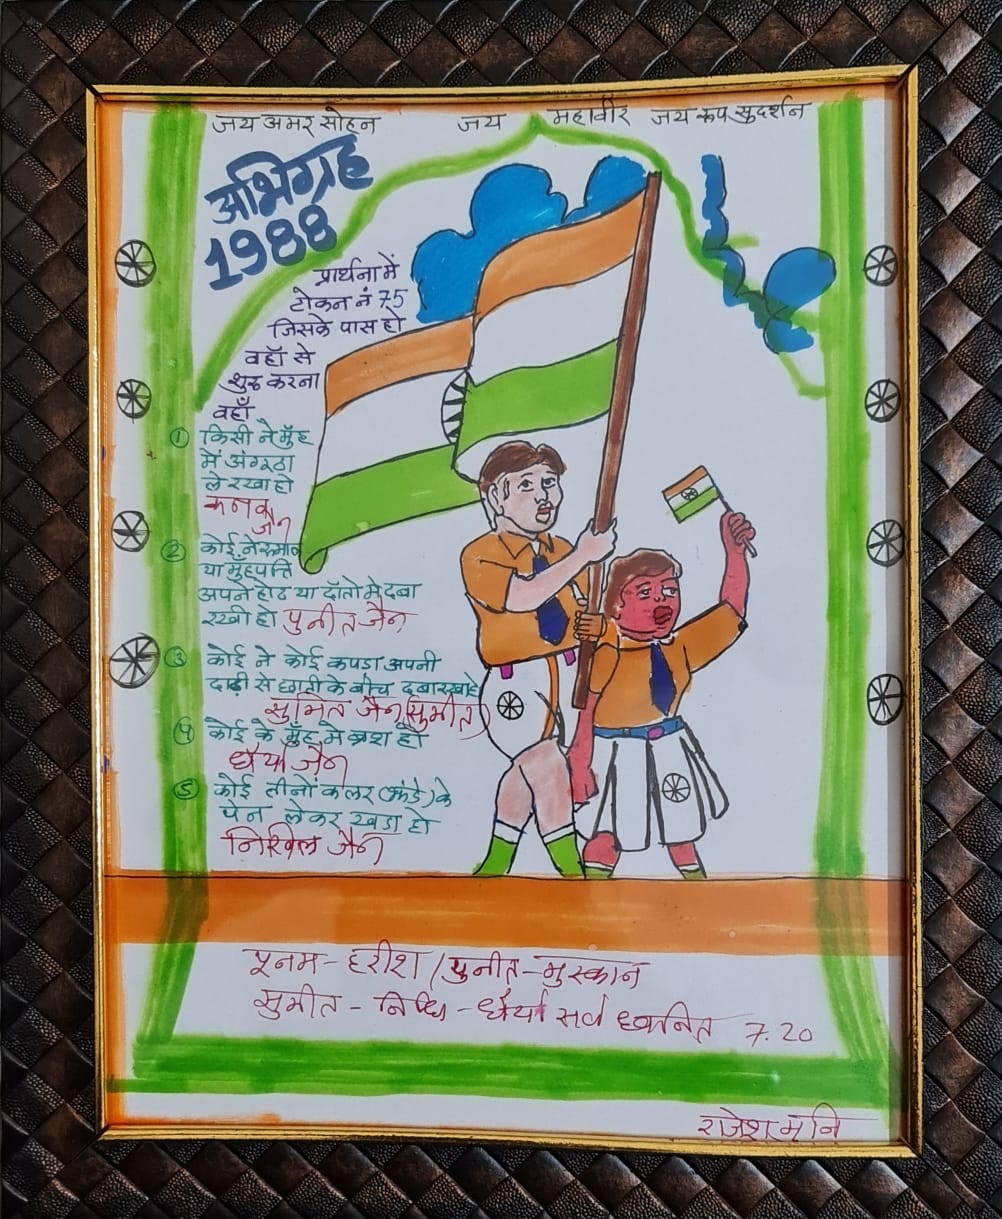 जय अमर सोहन जय महावीर जय रूप सुदर्शन
अभिग्रह
1988
प्रार्थना में
टोकन नं 75
जिसके पास हो
वहाँ से
शुरु करना
वहाँ
① किसी ने मुँह
में अंगूठा
ले रखा हो
कनक जैन
② कोई ने रुमाल
या मुँहपत्ति
अपने होठ या दाँतो मे दबा
रखी हो पुनीत जैन
③ कोई ने कोई कपडा अपनी
दाढ़ी से छाती के बीच दबा रखा हो
सुमित जैन (सुमीत)
④ कोई के मुँह मे ब्रश हो
धैर्या जैन
⑤ कोई तीनों कलर (झंडे) के
पेन लेकर खडा हो
निखिल जैन
पूनम - हरीश / पुनीत - मुस्कान
सुमीत - निधि - धैर्या सर्व ध्वनित 7.20
राजेश मुनि